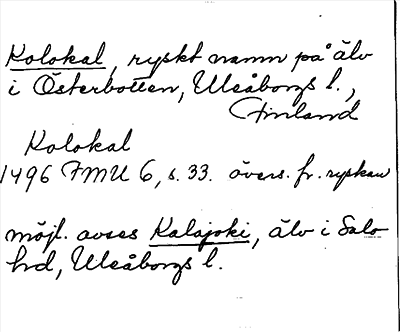 Kolokal, ryskt namn på älv
i Österbotten, Uleåborgs l.,
Finland
Kolokal
1496 FMU 6, s. 33. övers. fr. ryskan
möjl. avses Kalajoki, älv i Salo
hd, Uleåborgs l.